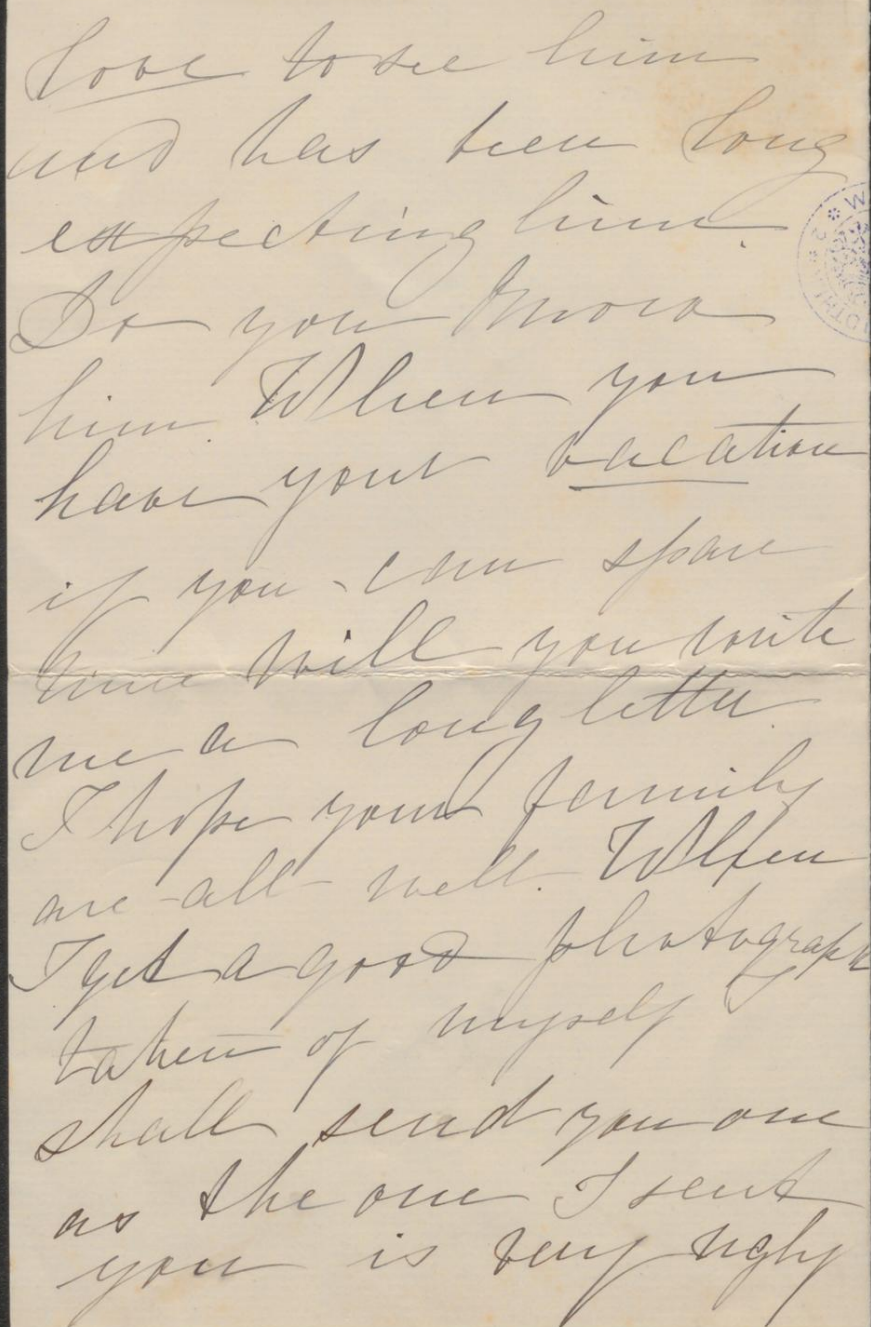 love to see him
and has been long
expecting him.
Do you know
him. When you
have your vacation
if you can spare
time will you write
me a long letter.
I hope your family
are all well. When
I get a good photograph
taken of myself I
shall send you one
as the one I sent
you is very ugly